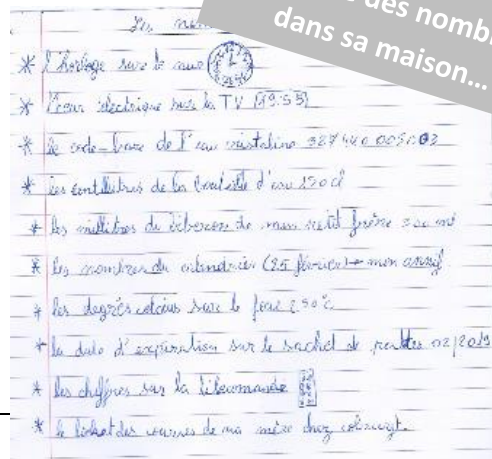 des nomb
dans sa maison...
Les
* l'horloge sur le mur
* l'écran électrique sur la TV 19:55
* le code-barre de l'eau cristaline
* les centilitres de la bouteille d'eau 150 cl
* les millilitres du biberon de mon petit frère ml
* les nombres du calendrier (25 février mon annif
* les degrés celcius sur le four 250°c
* la date d'expiration sur le sachet de 02/2019
* les chiffres sur la télécommande
* le ticket des courses de ma mère chez